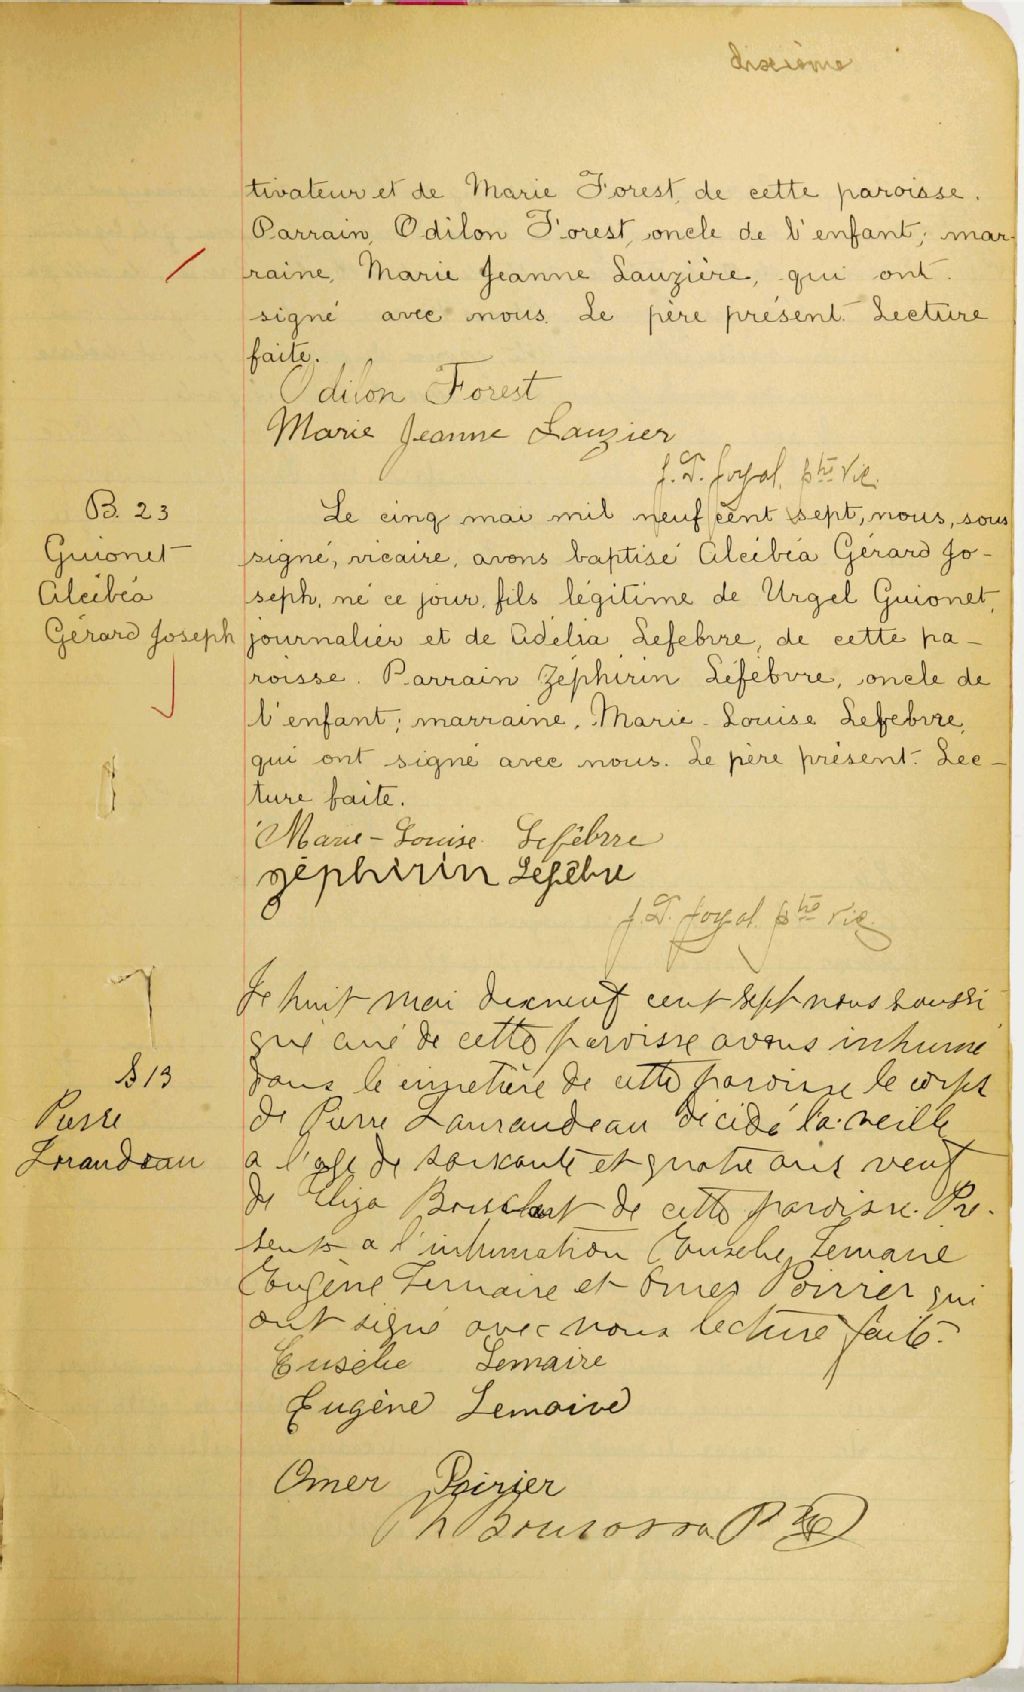 dixième
tivateur et de Marie Forest, de cette paroisse.
Parrain, Odilon Forest, oncle de l'enfant; mar-
raine, Marie Jeanne Lauzière, qui ont
signé avec nous. Le père présent. Lecture
faite.
Odilon Forest
Marie Jeanne Lauzier
J. D. Joyal, ptre Vic.
B. 23
Guionet
Alcibéa
Gérard Joseph
Le cinq mai mil neuf cent sept, nous, sous
signé, vicaire, avons baptisé Alcibéa Gérard Jo-
seph, né ce jour, fils légitime de Urgel Guionet,
journalier et de Adélia Lefebvre, de cette pa-
roisse. Parrain Zéphirin Léfebvre, oncle de
l'enfant; marraine, Marie-Louise Lefebvre,
qui ont signé avec nous. Le père présent. Lec-
ture faite.
Marie-Louise Lefêbvre
Zéphirin Lefêbvre
J. D. Joyal ptre vic.
S 13
Pierre
Lorandeau
Le huit mai dixneuf cent sept nous soussi
gné curé de cette paroisse avons inhumé
dans le cimetière de cette paroisse le corps
de Pierre Laurandeau décidé la veille
a l'age de soixante et quatre ans veuf
de Eliza de cette paroisse. Pré-
sents a l'inhumation Eusebe Lemaire
Eugène Lemaire et Omer Poirrier qui
ont signé avec nous lecture faite.
Eusèbe Lemaire
Eugène Lemaire
Omer Poirier
Ptre